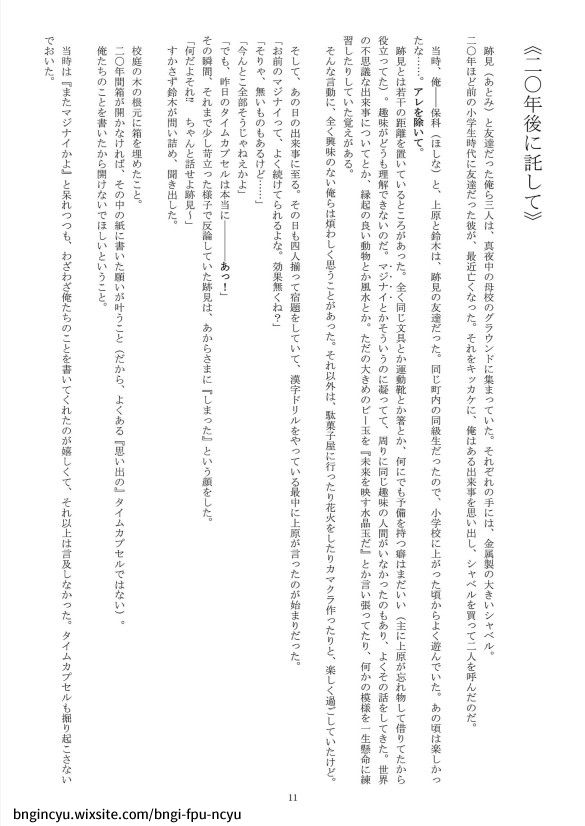 《二〇年後に託して》
跡見（あとみ）と友達だった俺ら三人は、真夜中の母校のグラウンドに集まっていた。それぞれの手には、金属製の大きいシャベル。
二〇年ほど前の小学生時代に友達だった彼が、最近亡くなった。それをキッカケに、俺はある出来事を思い出し、シャベルを買って二人を呼んだのだ。
当時、俺――保科（ほしな）と、上原と鈴木は、跡見の友達だった。同じ町内の同級生だったので、小学校に上がった頃からよく遊んでいた。あの頃は楽しかっ
たな……。アレを除いて。
跡見とは若干の距離を置いているところがあった。全く同じ文具とか運動靴とか箸とか、何にでも予備を持つ癖はまだいい（主に上原が忘れ物して借りてたから
役立ってた）。趣味がどうも理解できないのだ。マジナイとかそういうのに凝ってて、周りに同じ趣味の人間がいなかったのもあり、よくその話をしてきた。世界
の不思議な出来事についてとか、縁起の良い動物とか風水とか。ただの大きめのビー玉を『未来を映す水晶玉だ』とか言い張ってたり、何かの模様を一生懸命に練
習したりしていた覚えがある。
そんな言動に、全く興味のない俺らは煩わしく思うことがあった。それ以外は、駄菓子屋に行ったり花火をしたりカマクラ作ったりと、楽しく過ごしていたけど。
そして、あの日の出来事に至る。その日も四人揃って宿題をしていて、漢字ドリルをやっている最中に上原が言ったのが始まりだった。
「お前のマジナイって、よく続けてられるよな。効果無くね？」
「そりゃ、無いものもあるけど……」
「今んとこ全部そうじゃねえかよ」
「でも、昨日のタイムカプセルは本当に――あっ！」
その瞬間、それまで少し苛立った様子で反論していた跡見は、あからさまに『しまった』という顔をした。
「何だよそれ⁉　ちゃんと話せよ跡見～」
すかさず鈴木が問い詰め、聞き出した。
校庭の木の根元に箱を埋めたこと。
二〇年間箱が開かなければ、その中の紙に書いた願いが叶うこと（だから、よくある『思い出の』タイムカプセルではない）。
俺たちのことを書いたから開けないでほしいということ。
当時は『またマジナイかよ』と呆れつつも、わざわざ俺たちのことを書いてくれたのが嬉しくて、それ以上は言及しなかった。タイムカプセルも掘り起こさない
でおいた。
11
bngincyu.wixsite.com/bngi-fpu-ncyu